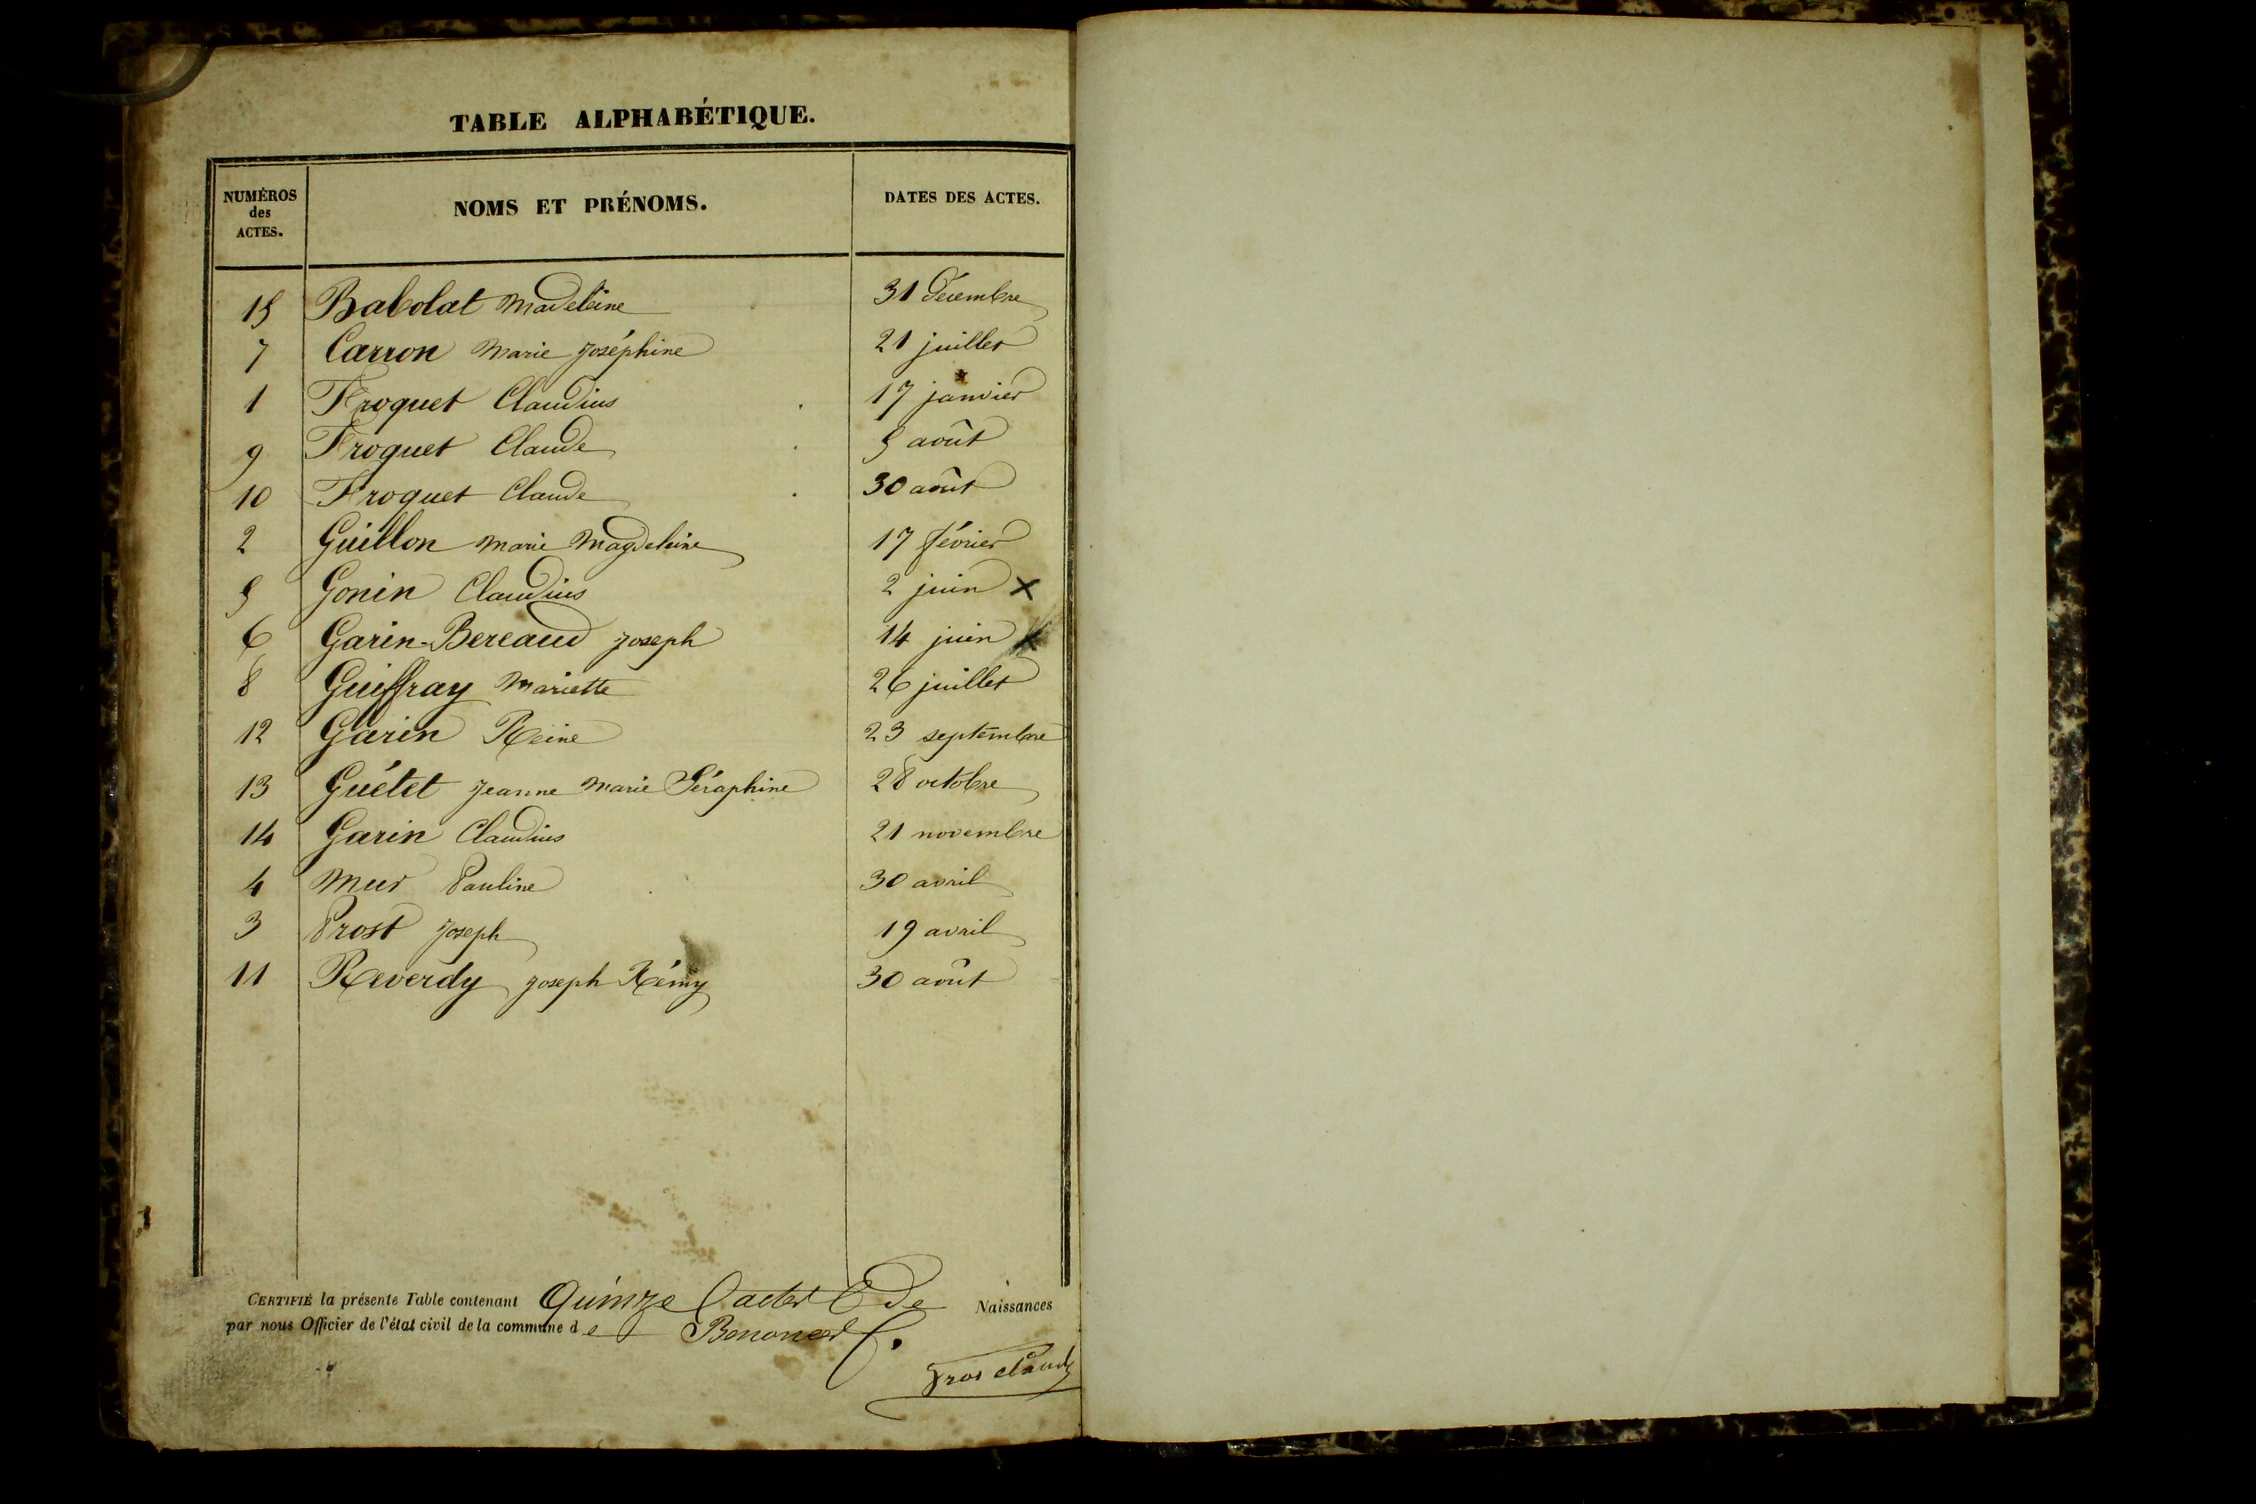 TABLE ALPHABÉTIQUE.
NUMÉROS des ACTES. NOMS ET PRÉNOMS. DATES DES ACTES.
15 Babolat Madeleine 31 décembre
7 Carron Marie Joséphine 21 juillet
1 Froquet Claudius 17 janvier
9 Froquet Claude 5 août
10 Froquet Claude 30 août
2 Guillon Marie Magdeleine 17 février
5 Gonin Claudius 2 juin x
6 Garin-Bereaud Joseph 14 juin x
8 Guiffray Mariette 26 juillet
12 Garin Reine 23 septembre
13 Guétet Jeanne Marie Séraphine 28 octobre
14 Garin Claudius 21 novembre
4 Mur Pauline 30 avril
3 Prost Joseph 19 avril
11 Reverdy Joseph Rémy 30 août
CERTIFIÉ la présente Table contenant Quinze actes de Naissances
par nous Officier de l'état civil de la commune de